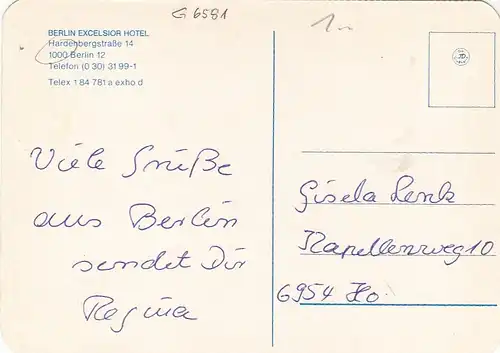 G 6581
1.-
BERLIN EXCELSIOR HOTEL
Hardenbergstraße 14
1000 Berlin 12
Telefon (0 30) 31 99-1
Telex 1 84 781 a exho d
Viele Grüße
aus Berlin
sendet Dir
Regina
Gisela Lenk
Kapellenweg 10
6954 Ho.